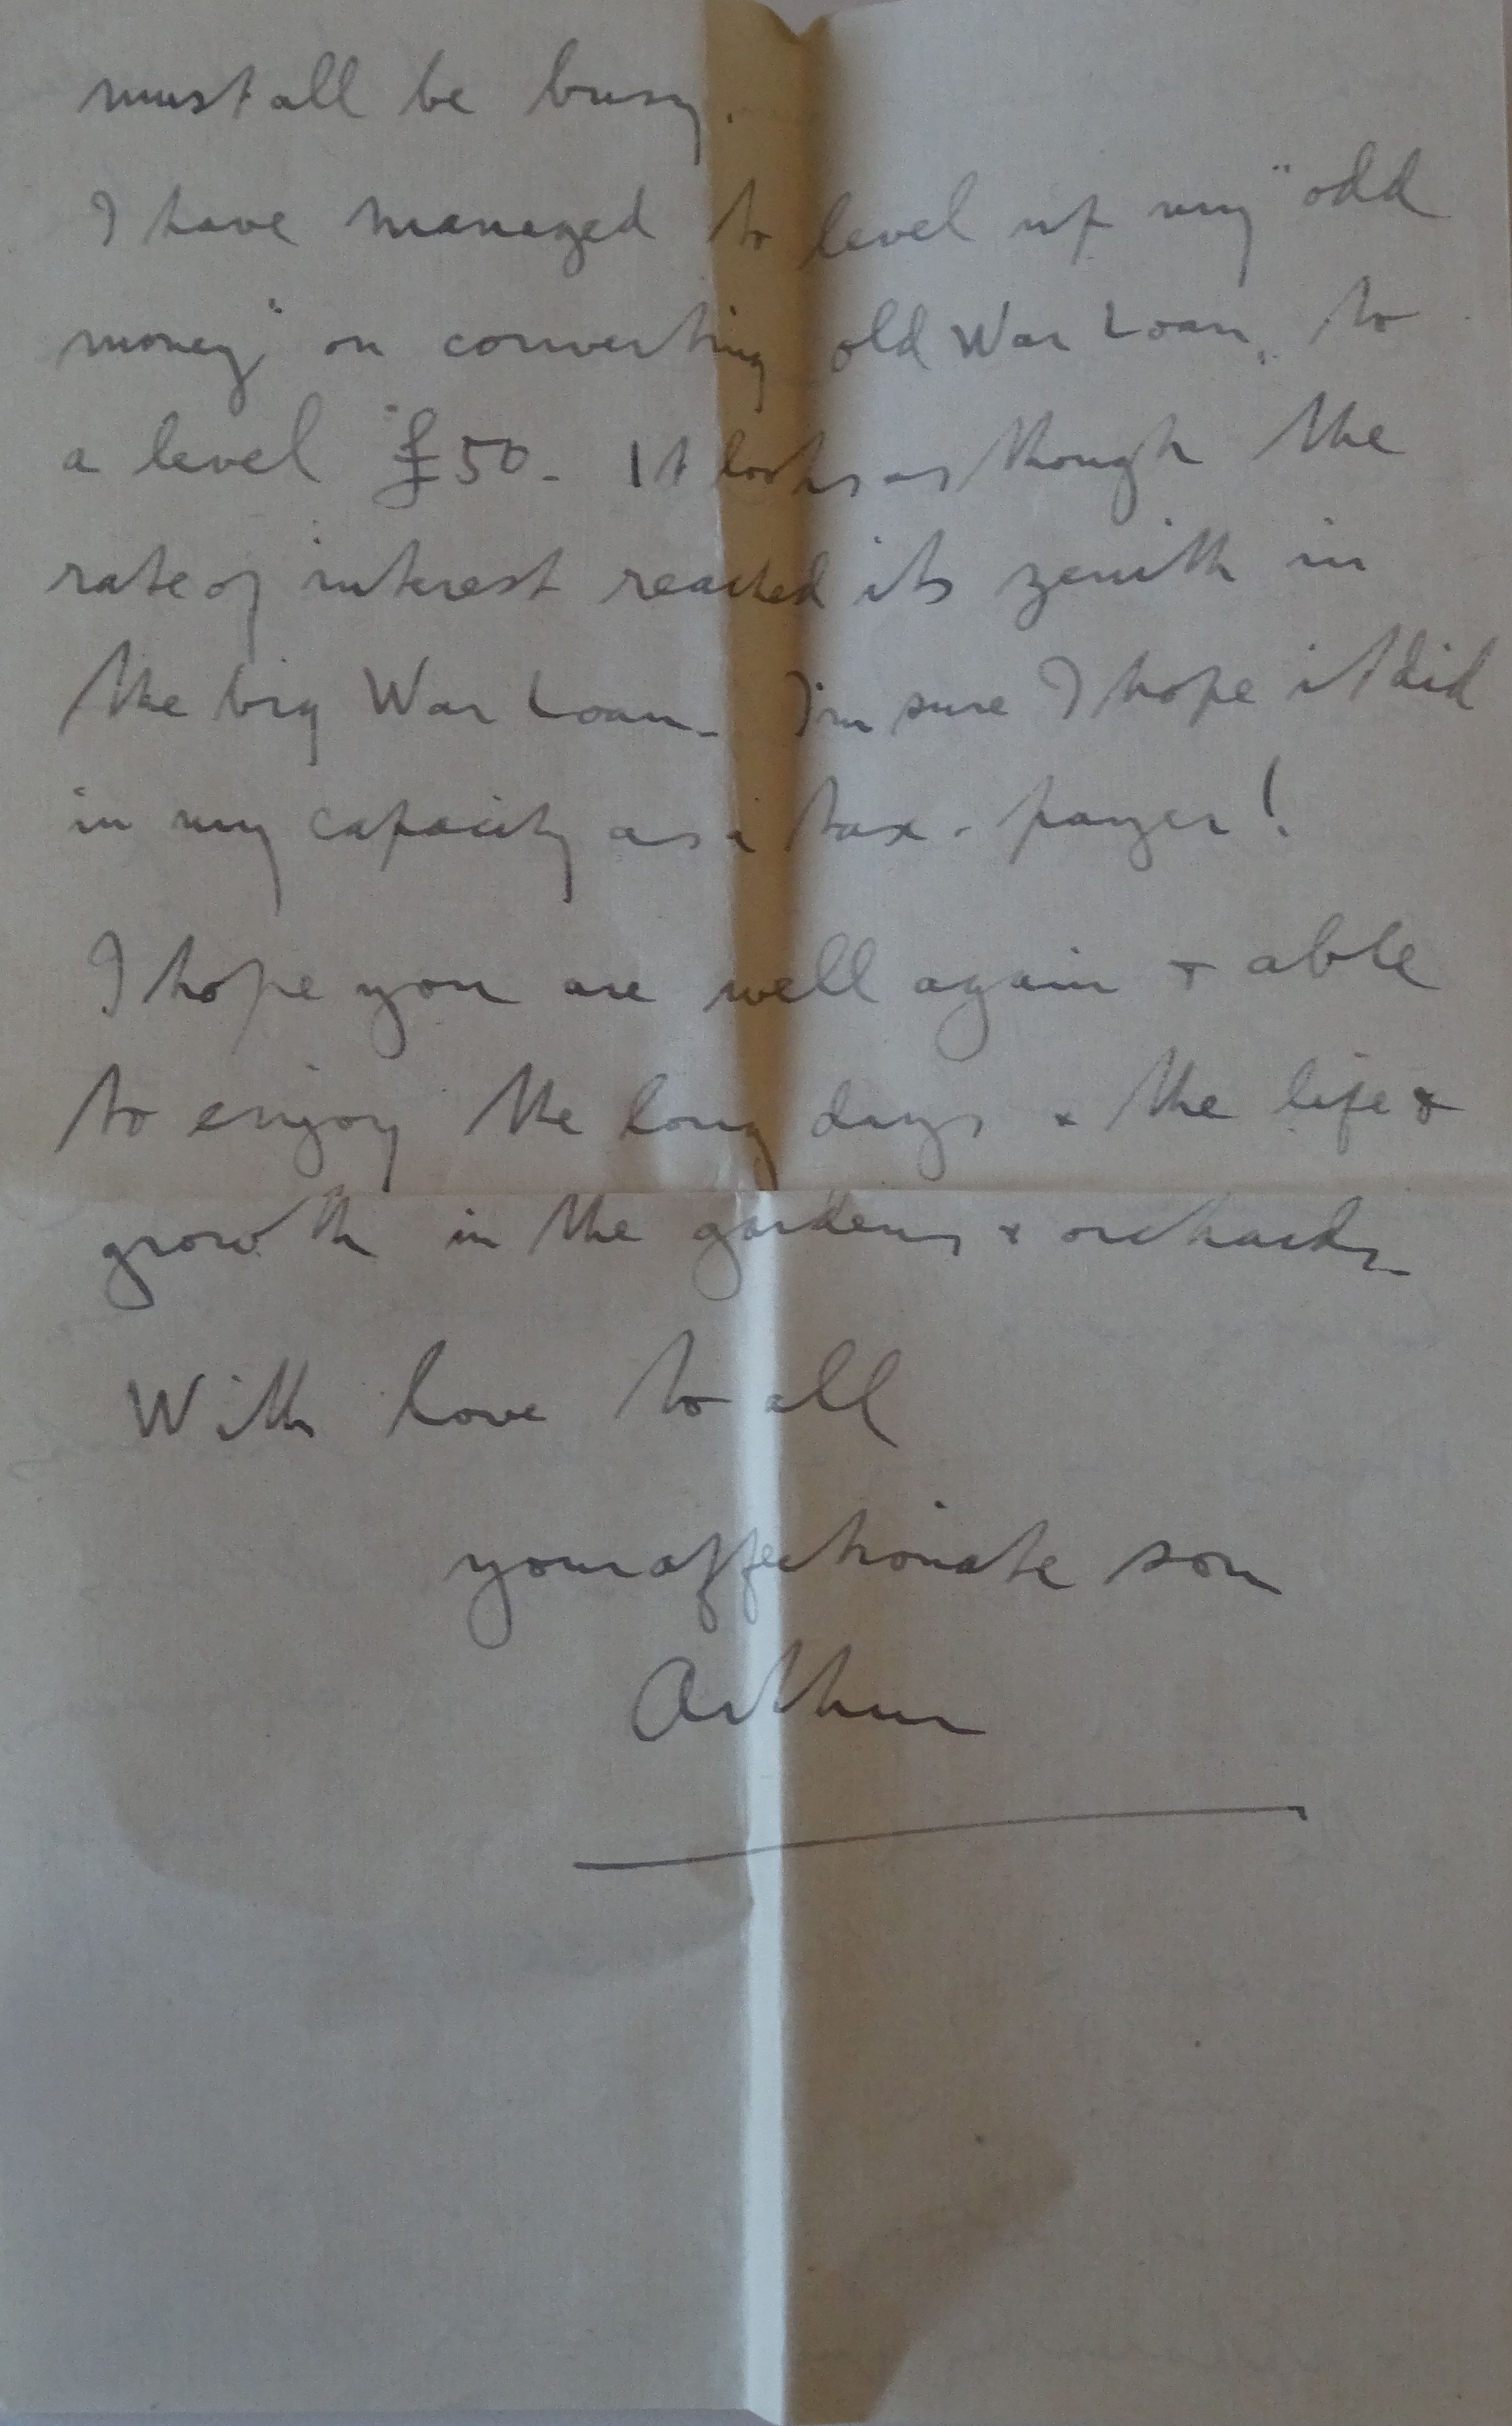 must all be busy.
I have managed to level up my "odd
money" on converting old War Loan, to
a level £50. It looks as though the
rate of interest reached its zenith in
the big War Loan. I'm sure I hope it did
in my capacity as a tax-payer!
I hope you are well again & able
to enjoy the long days & the life &
growth in the gardens & orchards.
With love to all
your affectionate son
Arthur